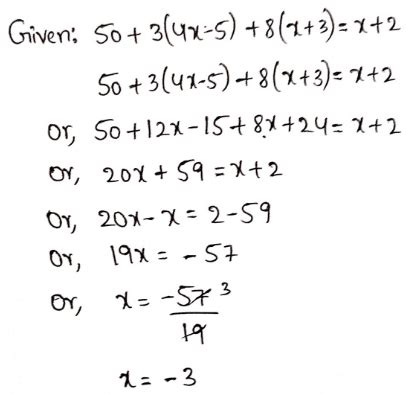 Given: 50 + 3(4x-5) + 8(x+3) = x+2
50 + 3(4x-5) + 8(x+3) = x+2
or, 50 + 12x - 15 + 8x + 24 = x+2
or, 20x + 59 = x+2
or, 20x - x = 2 - 59
or, 19x = -57
or, x = -57 3
19
x = -3